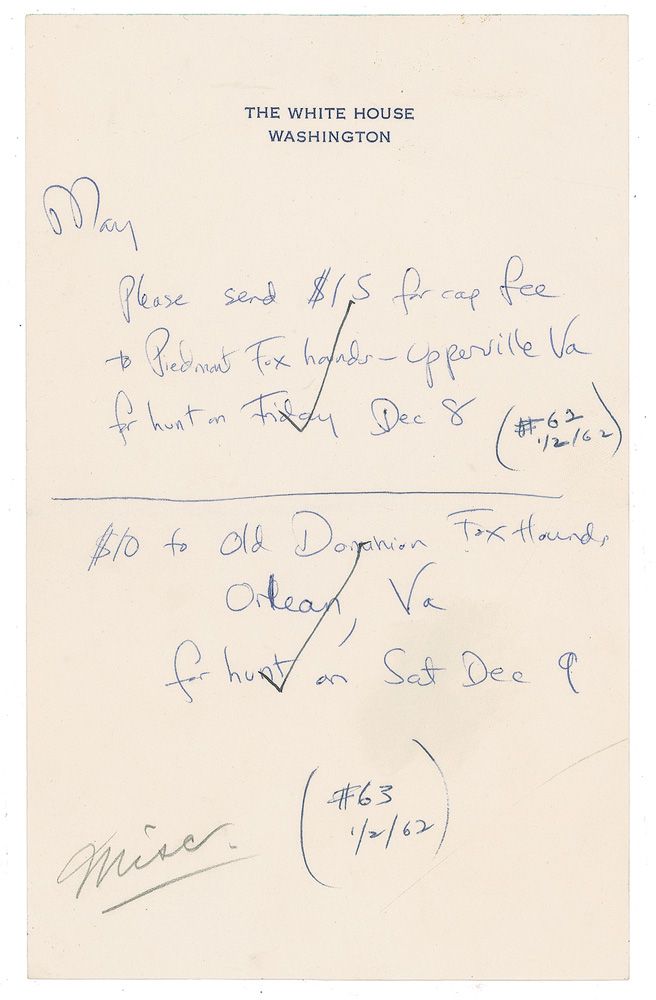 THE WHITE HOUSE
WASHINGTON
Mary
Please send $15 for cap fee
to Piedmont Fox hounds - Upperville Va
for hunt on Friday Dec 8
(#62
1/2/62)
$10 to Old Dominion Fox Hounds
Orlean, Va
for hunt on Sat Dec 9
(#63
1/2/62)
Misc.